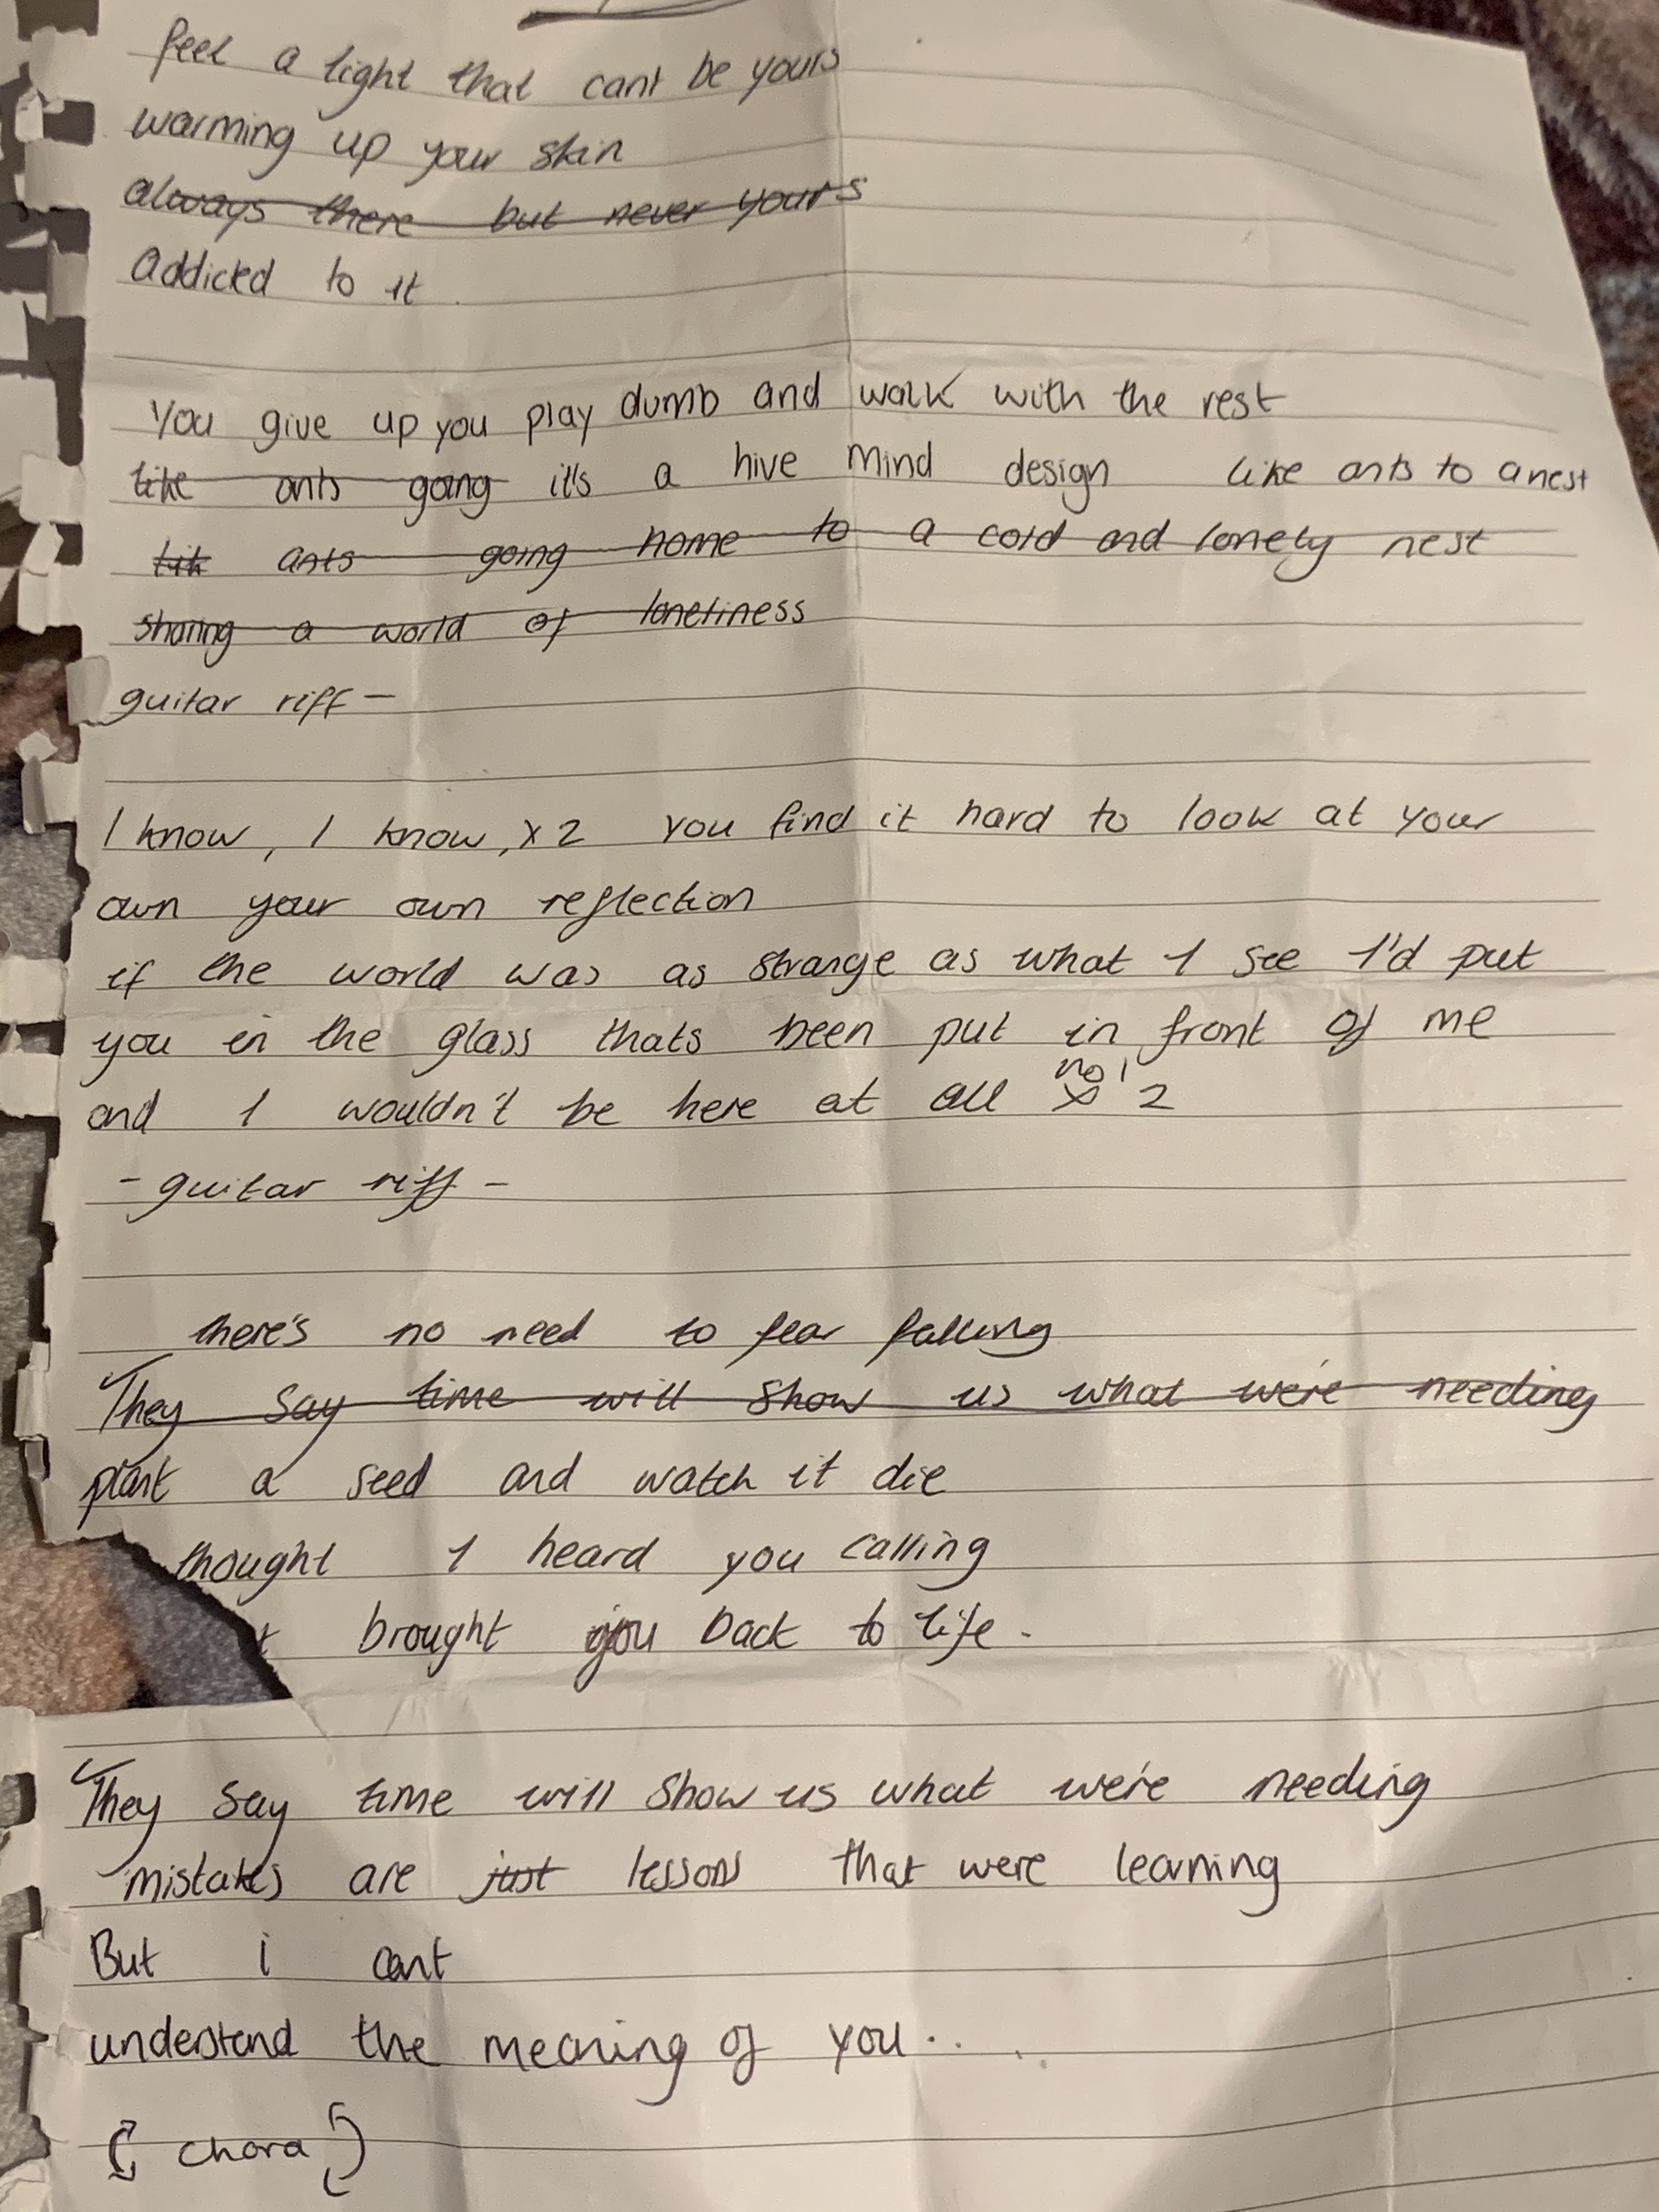 feel a light that cant be yours
warming up your skin
always there but never yours
Addicted to it
You give up you play dumb and walk with the rest
like ants going it's a hive mind design like ants to a nest
lik ants going home to a cold and lonely nest
sharing a world of loneliness
guitar riff -
I know, I know, x2 you find it hard to look at your
own your own reflection
if the world was as strange as what I see I'd put
you in the glass thats been put in front of me
no!
and I wouldn't be here at all x 2
- guitar riff -
there's no need to fear falling
They say time will show us what we're needing
plant a seed and watch it die
thought I heard you calling
brought you back to life.
They say time will show us what we're needing
mistakes are just lessons that were learning
But i cant
understand the meaning of you..
( chora )